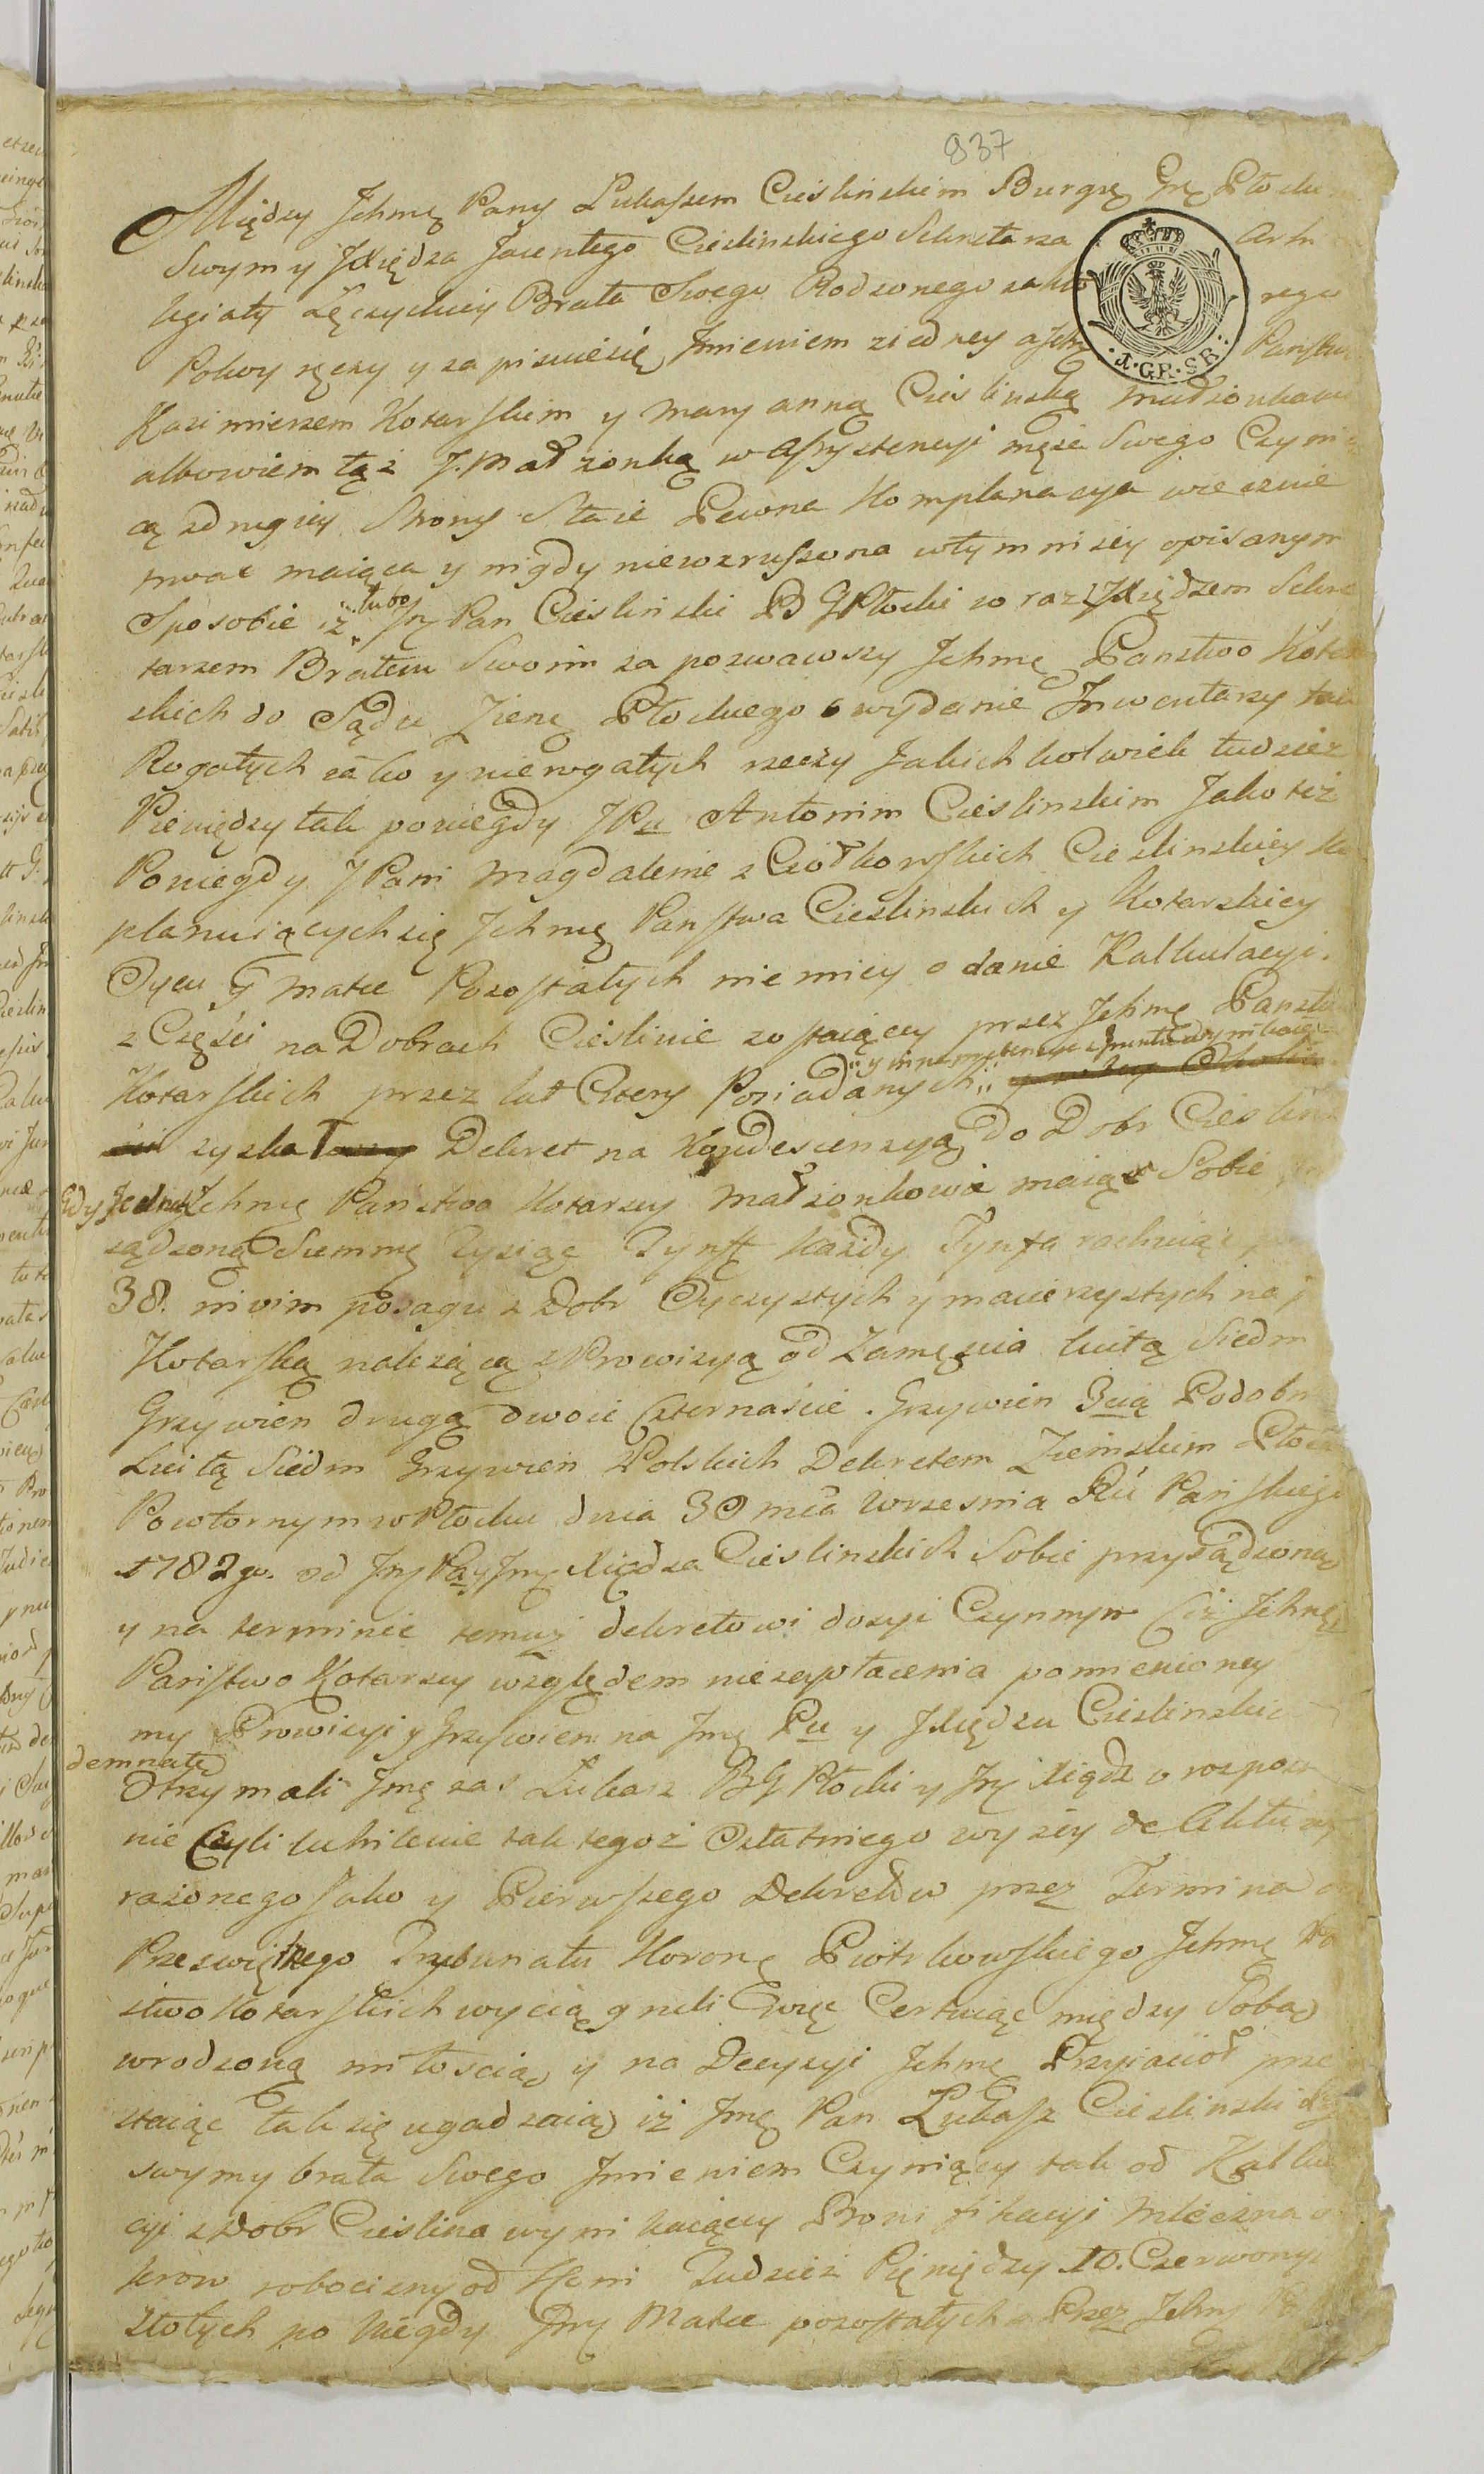 937
Między Jchmę Pany Lukaszem Cieslinskiem Burgrę Grę Płockim
Swym y JXiędza Jacentego Cieslinskiego Sekretarza
legiaty Lęczyckiey Brata Swego Rodzonego za któ rego
J. GR. SR.
Polwy ręczy y za pisuie się Jmieniem z iedney a Jchmę Panstwe
Kazimierzem Kotarskim y Maryanną Cieslinską Małżonkami
albowiem tąż J. Małżonką w Assystencyi męża Swego Czynią
cą z drugiey Strony Staie Pewna Komplanacya wiecznie
trwać maiąca y nigdy niewzruszona w tym niżey opisanym
Sposobie iż lubo Jmę Pan Cieslinski B G Płocki wraz z JXiędzem Sekre
tarzem Bratem Swoim za pozwawszy Jchmę Panstwo Kotar
skich do Sądu Ziemę Płockiego o wydanie Jnwentarzy tak
Rogatych iako y nierogatych rzeczy Jakichkolwiek tudzież
Pieniędzy tak poniegdy JPu Antonim Cieslinskim Jako też
Poniegdy JPani Magdalenie z Ciółkowskich Cieslinskiey Ko
planuiących się Jchmę Panstwa Cieslinskich y Kotarskiey
Oycu y Matce Pozostałych niemniey o danie Kalkulacyi
z Części na Dobrach Cieslinie zostaiącey przez Jchmę Panstwa
Kotarskich przez lat Cztery Posiadanych
zyskał Dekret na Kondescensyą do Dobr Cieslin
Gdy Jednak Jchmę Panstwo Kotarscy Małżonkowie maiąc Sobie
sądzoną Summę Tysiąc Tynff każdy Tynfa rachuiąc
38. nivim posagu z Dobr Oyczystych y macierzystych na
Kotarską należącą z Prowizyą od Zamęścia luitą Siedm
Grzywien drugą dwoie Czternaście Grzywien 3cią Podobn
Luitą Siedm Grzywien Polskich Dekretem Ziemskim Płock
Powtornym w Płocku dnia 30 mca Wrzesnia Ru Panskiego
1782go. od Jmę Pa y Jmę Xiędza Cieslinskich Sobie przysądzoną
y na terminie temuż dekretowi dosyć Czynnym Ciż Jchmę
Panstwo Kotarscy względem niezapłacenia pomienioney
my Prowizyi y Grzywien na Jmę Pu y JXiędzu Cieslinskich
demnatę
Otrzymali Jmę zas Lukasz BG Płocki y Jmę Xiądz o rozpozn
nie Czyli uchilenie tak tegoż Ostatniego wyżey de Aktu wy
rażonego Jako y Pierwszego Dekretów przez Termina do
Przeswiętnego Trybunału Koronę Piotrkowskiego Jchmę Pa
stwo Kotarskich wyciągneli Owoż Certuiąc między Sobą
wrodzoną miłoscią y na Decyzyi Jchmę Przyiaciół prze
staiąc tak się ugadzaią iż Jmę Pan Lukasz Cieslinski
swym y brata Swego Jmieniem Czyniący tak od Kalkula
cyi z Dobr Cieslina wynikaiącey Bonifikacyi Mleczna od
krow robocizny od Koni Tudzież Pieniędzy 10. Czerwonych
złotych po niegdy Jmę Matce pozostałych Przez Jchmę